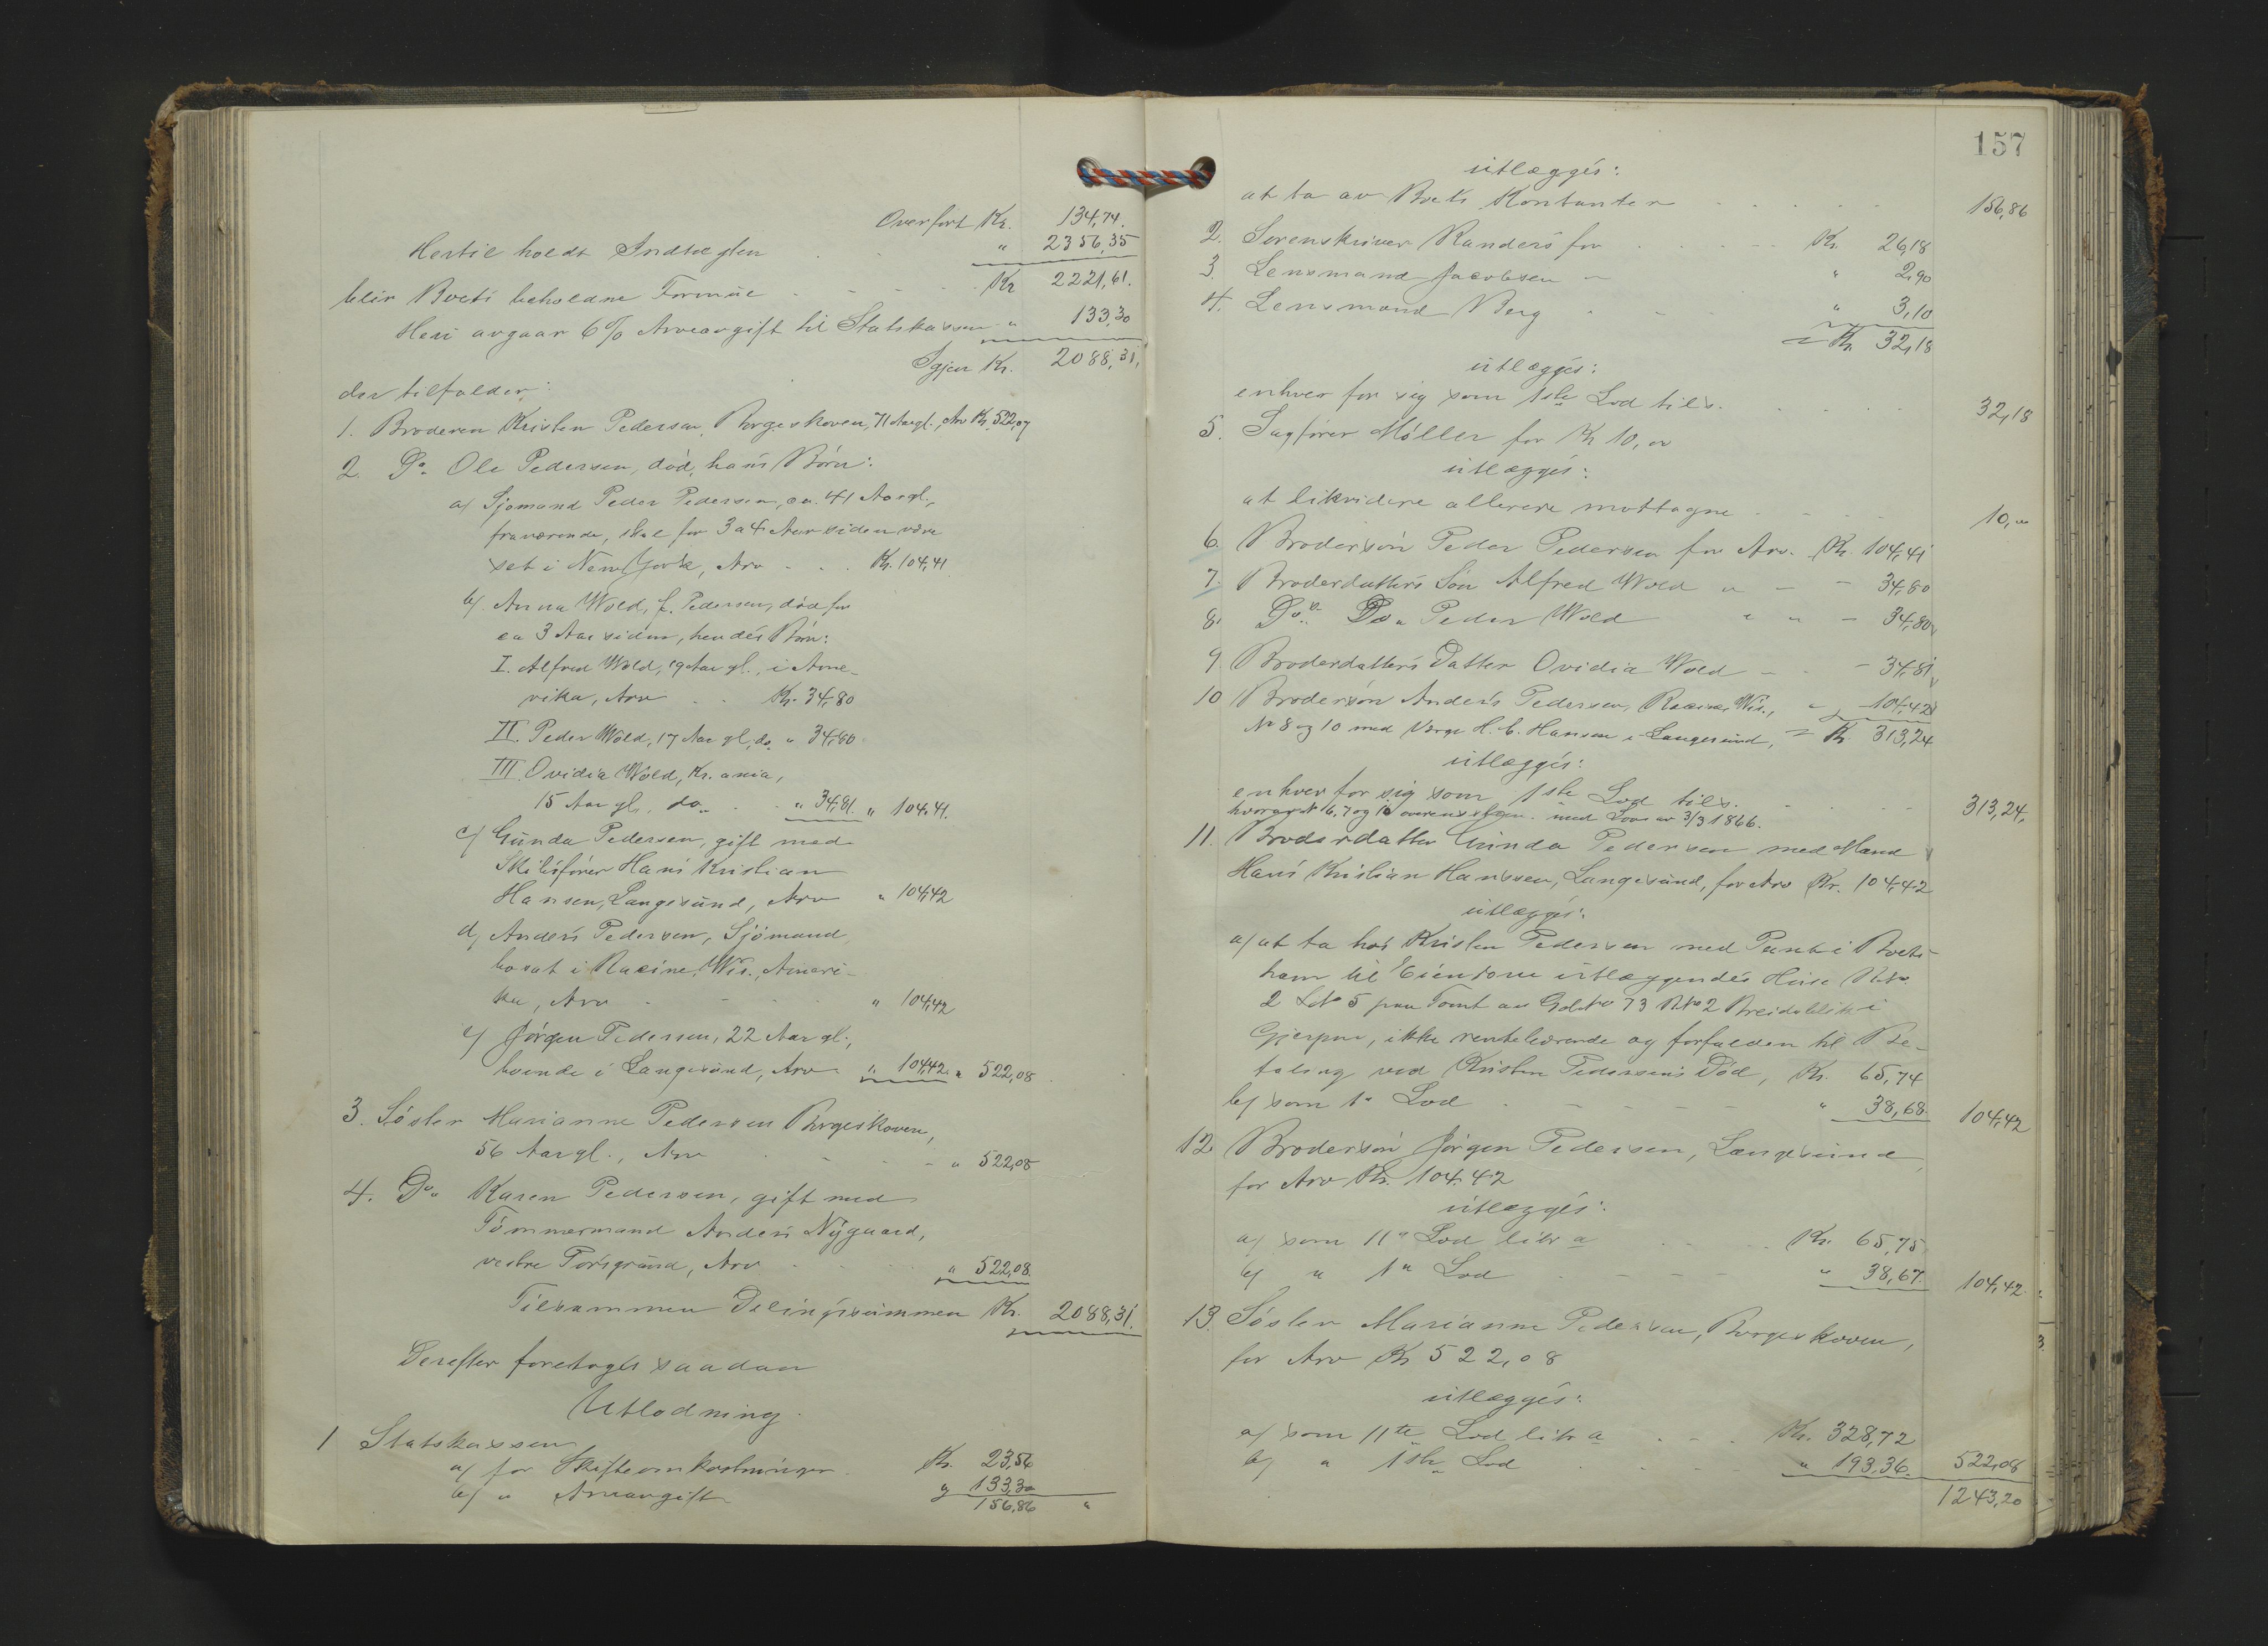 Overført Kr. 134,74.
Hertil holdt Indtægten . . " 2356,35
blir Boets beholdne Formue . . . . Kr 2221,61.
Heri avgaar 6% Arveavgift til Statskassen " 133,30
Igjen Kr. 2088,31,
der tilfalder:
1. Broderen Kristen Pedersen, Borgeskoven, 71 Aar gl., Arv Kr. 522,07
2. Do. Ole Pedersen, död, hans Börn:
a/ Sjömand Peder Pedersen, ca. 41 Aar gl.,
fraværende, skal for 3 a 4 Aar siden være
set i New York, Arv . . . Kr. 104,41
b/ Anna Wold, f. Pedersen, död for
ca 3 Aar siden, hendes Börn:
I. Alfred Wold, 19 Aar gl., i Arne-
vika, Arv . . Kr. 34,80
II. Peder Wold, 17 Aar gl, do. " 34,80
III. Ovidia Wold, Kr.ania,
15 Aar gl. do. . . " 34,81. " 104,41.
c/ Gunda Pedersen, gift med
Skibsförer Hans Kristian
Hansen, Langesund, Arv " 104,42
d/ Anders Pedersen, Sjömand,
bosat i Racine, Wis., Ameri-
ka, Arv . . . . " 104,42
e/ Jörgen Pedersen, 22 Aar gl.,
boende i Langesund, Arv " 104,42. " 522,08
3. Söster Marianne Pedersen Borgeskoven,
56 Aar gl., Arv . . . . " 522,08
4. Do. Karen Pedersen, gift med
Tömmermand Anders Nygaard,
vestre Porsgrund, Arv . . . " 522,08.
Tilsammen Delingssummen Kr. 2088,31.
Derefter foretages saadan
Utlodning.
1 Statskassen
a/ for Skifteomkostninger . Kr. 23,56
b/ " Arveavgift " 133,30
156,86 "
157
utlægges:
at ta av Boets Kontanter . . . . . 156,86
2. Sorenskriver Randers for . . . . Kr. 26,18
3. Lensmand Jacobsen - " 2,90
4. Lensmand Berg . . . " 3,10
= Kr. 32,18
utlægges:
enhver for sig som 1ste Lod tils. . . . . . 32,18
5. Sagförer Möller for Kr 10,00
utlægges:
at likvidere allerede mottagne . . . . 10,00
6. Brodersön Peder Pedersen for Arv. Kr. 104,41
7. Broderdatters Sön Alfred Wold " - - 34,80
8. Do. Do. Peder Wold " " - 34,80
9. Broderdatters Datter Ovidia Wold - - - 34,81
10 Brodersön Anders Pedersen, Racine, Wis., " - 104,42
No 8 og 10 med Verge H. C. Hansen i Langesund, = Kr. 313,24
utlægges:
enhver for sig som 1ste Lod tils. . . . . . 313,24,
hvorav No 6, 7 og 10 overensstem. med Lov av 3/3 1866.
11. Broderdatter Gunda Pedersen med Mand
Hans Kristian Hanssen, Langesund, for Arv Kr. 104,42
utlægges:
a/ at ta hos Kristen Pedersen med Pant i Boets
ham til Eiendom utlæggendes Huse Bno
2 LNo 5 paa Tomt av Gaardno 73 Bno 2 Breidablik i
Gjerpen, ikke rentebærende og forfalden til Be-
taling ved Kristen Pedersens Död, Kr. 65,74
b/ som 1e Lod . . . . . . " 38,68. 104,42
12. Brodersön Jörgen Pedersen, Langesund,
for Arv Kr. 104,42
utlægges:
a/ som 11e Lod litr a . . . Kr. 65,75
b/ " 1e Lod . . . . " 38,67. 104,42.
13. Söster Marianne Pedersen, Borgeskoven,
for Arv Kr 522,08
utlægges:
a/ som 11te Lod litr a . . . Kr. 328,72
b/ " 1ste Lod . . . " 193,36. 522,08
1243,20